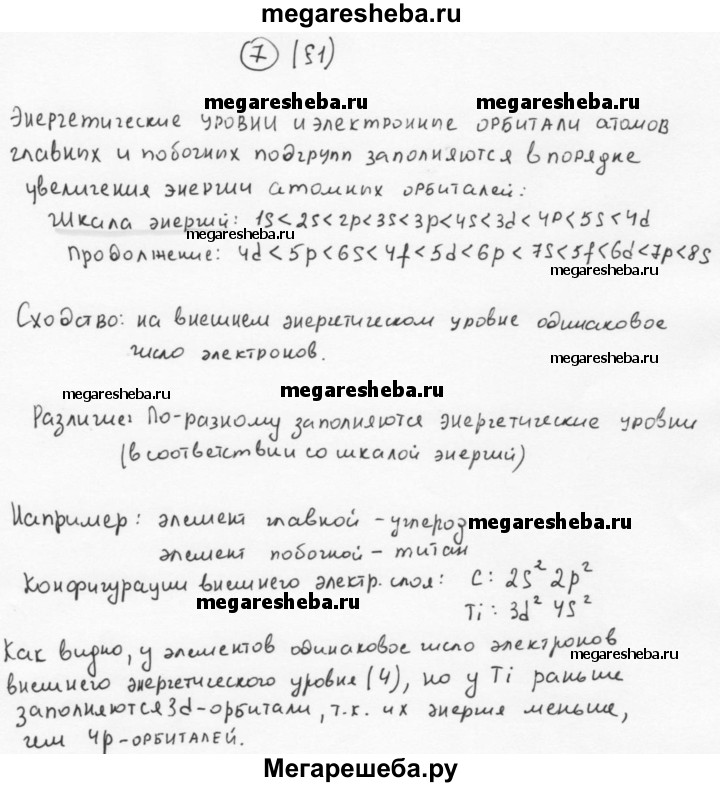 megaresheba.ru
7 (§1)
megaresheba.ru megaresheba.ru
Энергетические уровни и электронные орбитали атомов
главных и побочных подгрупп заполняются в порядке
увеличения энергии атомных орбиталей:
Шкала энергий: 1s<2s<2p<3s<3p<4s<3d<4p<5s<4d
megaresheba.ru
Продолжение: 4d<5p<6s<4f<5d<6p<7s<5f<6d<7p<8s
megaresheba.ru
Сходство: на внешнем энергетическом уровне одинаковое
число электронов.
megaresheba.ru
megaresheba.ru megaresheba.ru
Различие: По-разному заполняются энергетические уровни
(в соответствии со шкалой энергий)
Например: элемент главной - углерод
megaresheba.ru
элемент побочной - титан
Конфигурации внешнего электр. слоя: C: 2s² 2p²
megaresheba.ru
Ti: 3d² 4s²
Как видно, у элементов одинаковое число электронов
megaresheba.ru
внешнего энергетического уровня (4), но у Ti раньше
заполняются 3d-орбитали, т.к. их энергия меньше,
чем 4p-орбиталей.
Мегарешеба.ру